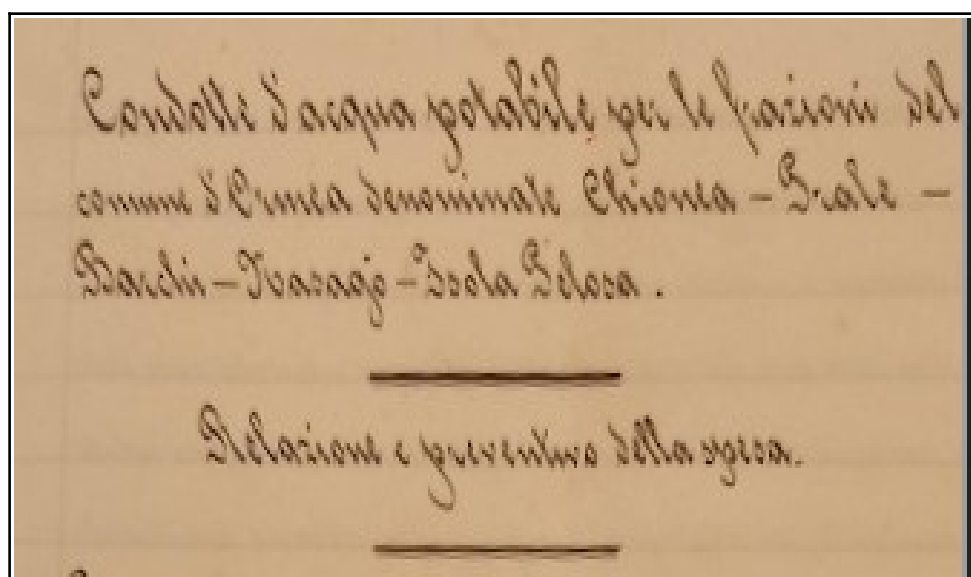 Condotte d'acqua potabile per le frazioni del
comune d'Ormea denominate Chionea - Prale -
Barchi - Isola Pelosa.
Relazione e preventivo della spesa.